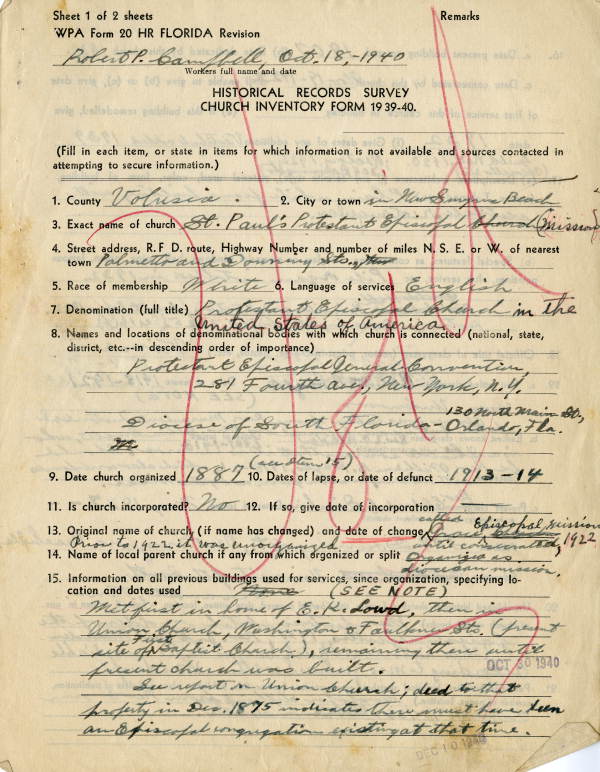 Sheet 1 of 2 sheets
Remarks
WPA Form 20 HR FLORIDA Revision
Robert P. Campbell, Oct. 18,-1940
Workers full name and date
HISTORICAL RECORDS SURVEY
CHURCH INVENTORY FORM 1939-40.
(Fill in each item, or state in items for which information is not available and sources contacted in
attempting to secure information.)
1. County Volusia. 2. City or town in New Smyrna Beach
3. Exact name of church St. Paul's Protestant Episcopal Church (mission)
4. Street address, R. F D. route, Highway Number and number of miles N. S. E. or W. of nearest
town Palmetto and Downing Sts.,
5. Race of membership White 6. Language of services English
7. Denomination (full title) Protestant Episcopal Church in the
United States of America
8. Names and locations of denominational bodies with which church is connected (national, state,
district, etc.--in descending order of importance)
Protestant Episcopal General Convention,
281 Fourth ave., New York, N.Y.
130 North Main St.,
Diocese of South Florida- Orlando, Fla.
(see Item 15)
9. Date church organized 1887 10. Dates of lapse, or date of defunct 1913-14
11. Is church incorporated? No 12. If so, give date of incorporation
called Episcopal mission
13. Original name of church (if name has changed) and date of change
Prior to 1922 it was unorganized until consecrated, 1922
14. Name of local parent church if any from which organized or split
diocesan mission.
15. Information on all previous buildings used for services, since organization, specifying lo-
cation and dates used None (SEE NOTE)
Met first in home of E. K. Lowd, then in
Union Church, Washington & Faulkner Sts. (present
site of First Baptist Church), remaining there until
present church was built.
OCT 30 1940
See report on Union Church; deed to that
property in Dec. 1875 indicates there must have been
an Episcopal congregation existing at that time.
DEC 10 1940